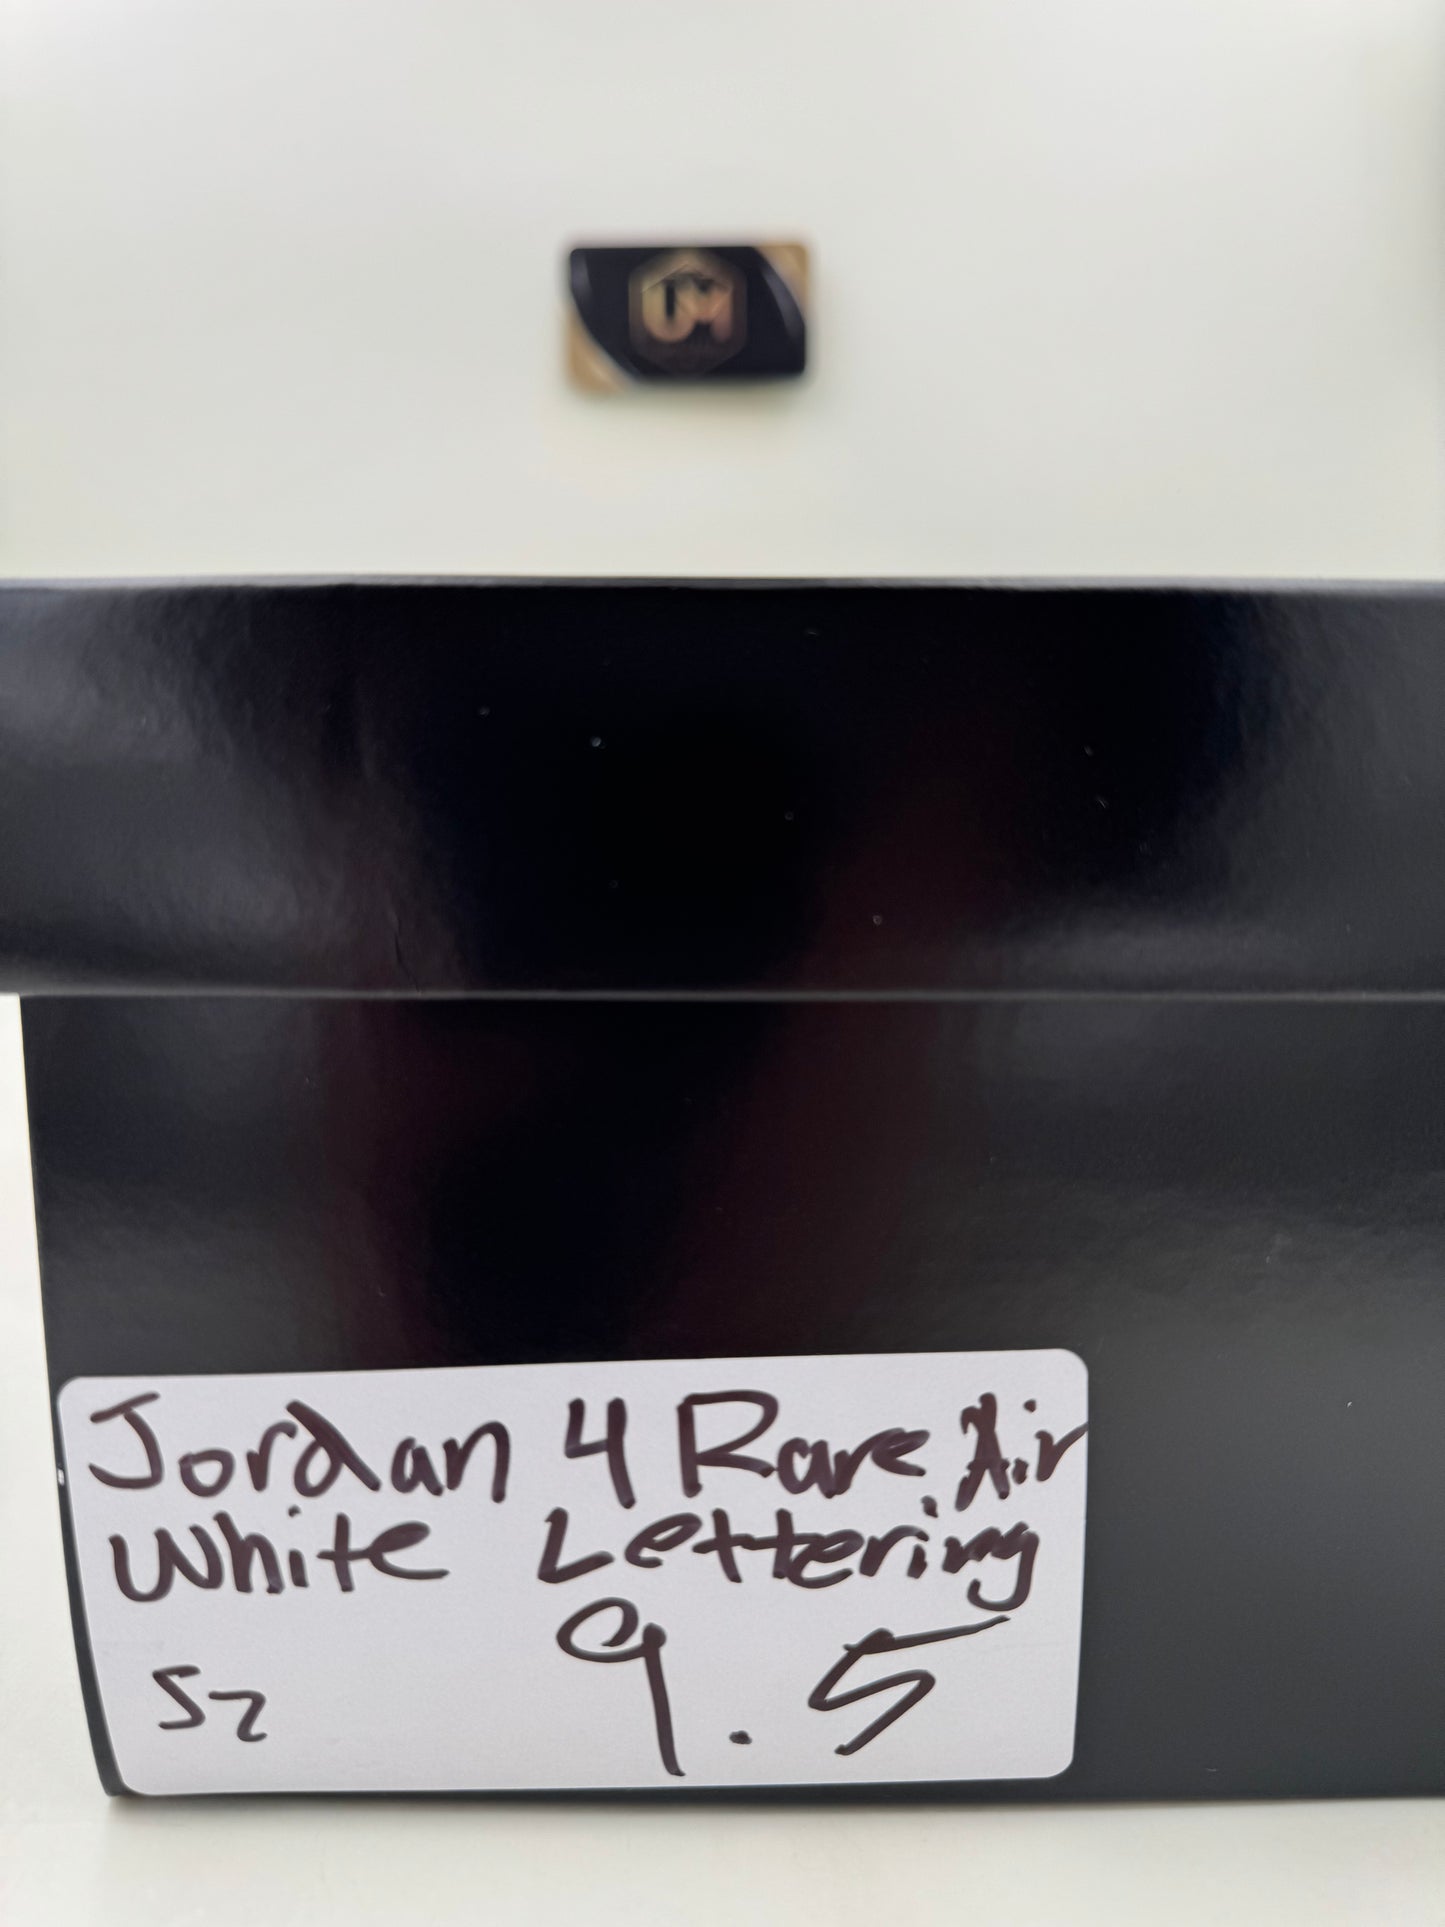 UM
Jordan 4 Rare Air
White Lettering
Sz 9.5